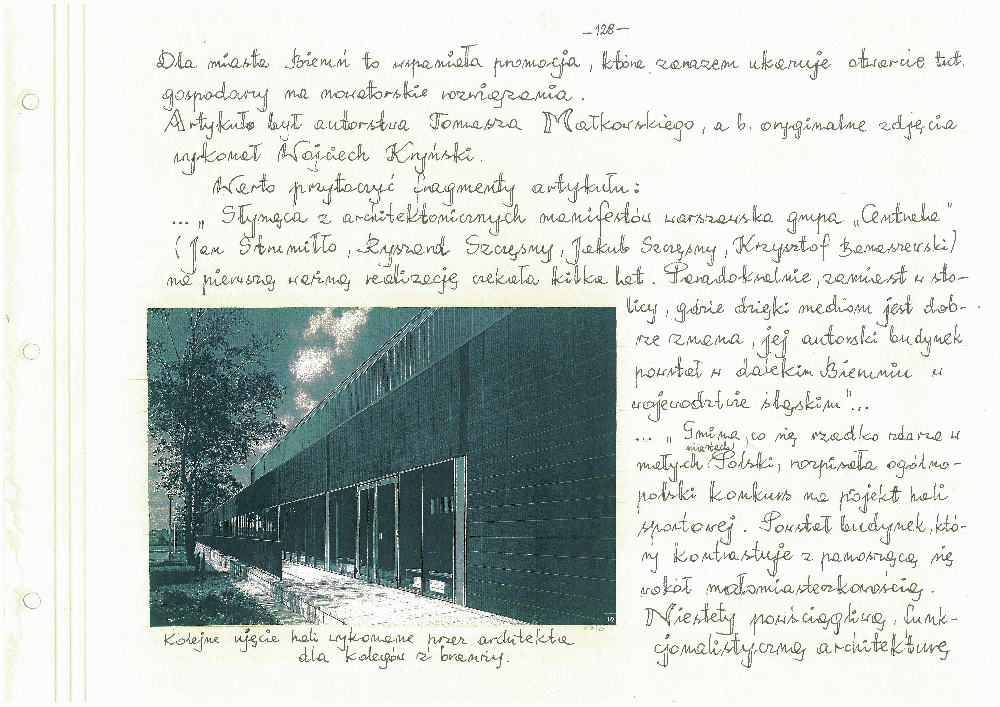 -128-
Dla miasta Bieruń to wspaniała promocja, która zarazem ukazuje otwarcie tut.
gospodarzy na nowatorskie rozwiązania.
Artykuł był autorstwa Tomasza Małkowskiego, a b. oryginalne zdjęcia
wykonał Wojciech Kryński.
Warto przytoczyć fragmenty artykułu:
... „ Słynąca z architektonicznych manifestów warszawska grupa „Centrala"
(Jan Strumiłło, Ryszard Szczęsny, Jakub Szczęsny, Krzysztof Banaszewski)
na pierwszą ważną realizację czekała kilka lat. Paradoksalnie, zamiast w sto-
licy, gdzie dzięki mediom jest dob-
rze znana, jej autorski budynek
powstał w dalekim Bieruniu w
województwie śląskim"...
... „ Gmina, co się rzadko zdarza w
małych miastach Polski, rozpisała ogólno-
polski konkurs na projekt hali
sportowej. Powstał budynek, któ-
ry kontrastuje z panoszącą się
wokół małomiasteczkowością.
Niestety powściągliwą, funk-
cjonalistyczną architekturę
Kolejne ujęcie hali wykonane przez architekta
dla kolegów z branży.